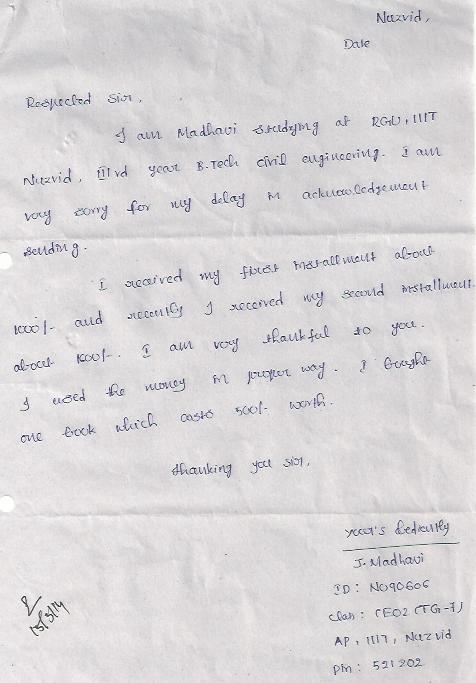 Nuzvid,
Date
Respected Sir,
I am Madhavi studying at RGU, IIIT
Nuzvid, III rd year B.Tech civil engineering. I am
very sorry for my delay in acknowledgement
sending.
I received my first installment about
1000/- and recently I received my second installment
about 1000/-. I am very thankful to you.
I used the money in proper way. I bought
one book which costs 500/- worth.
thanking you sir,
your's obediently
J. Madhavi
ID: N090606
class: CE02 (TG-7)
AP, IIIT, Nuzvid
Pin: 521202
15/3/14